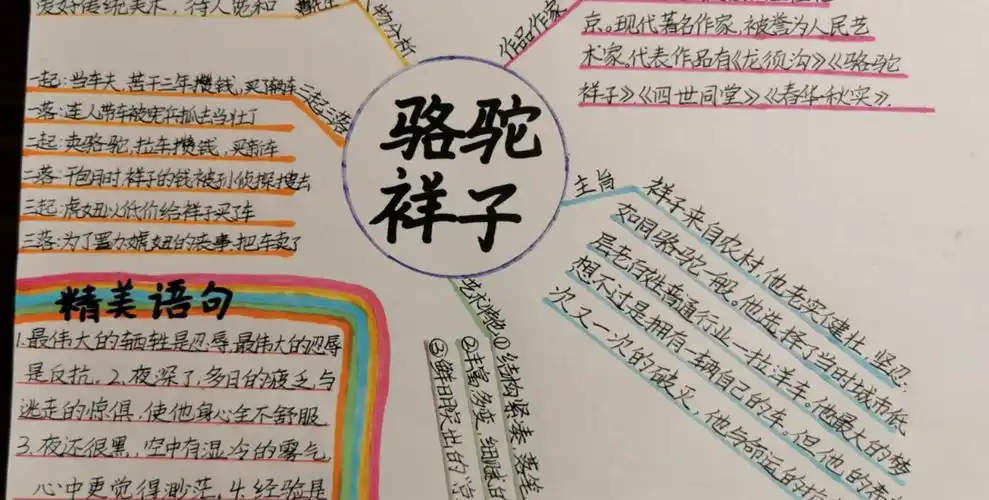 爱好传统美术，待人宽和
人物分析
作品作家
京。现代著名作家，被誉为人民艺
术家。代表作品有《龙须沟》《骆驼
祥子》《四世同堂》《春华秋实》.
骆驼
祥子
三起三落
一起：当车夫，苦干三年攒钱，买了辆车
一落：连人带车被宪兵抓去当壮丁
二起：卖骆驼，拉车攒钱，买新车
二落：干包月时祥子的钱被孙侦探搜去
三起：虎妞以低价给祥子买了车
三落：为了置办虎妞的丧事，把车卖了
主旨
祥子来自农村，他老实健壮，坚忍，
如同骆驼一般。他选择了当时城市低
层老百姓普通行业一拉洋车。他最大的梦
想不过是拥有一辆自己的车。但他的希
次又一次的破灭，他与命运的
精美语句
1.最伟大的牺牲是忍辱，最伟大的忍辱
是反抗。2.夜深了，多日的疲乏，与
逃走的惊惧，使他身心全不舒服
3.夜还很黑，空中有湿冷的雾气，
心中更觉得渺茫。4.经验是
艺术特色
①结构紧凑 落笔
②丰富多变 细腻的
③鲜明突出的